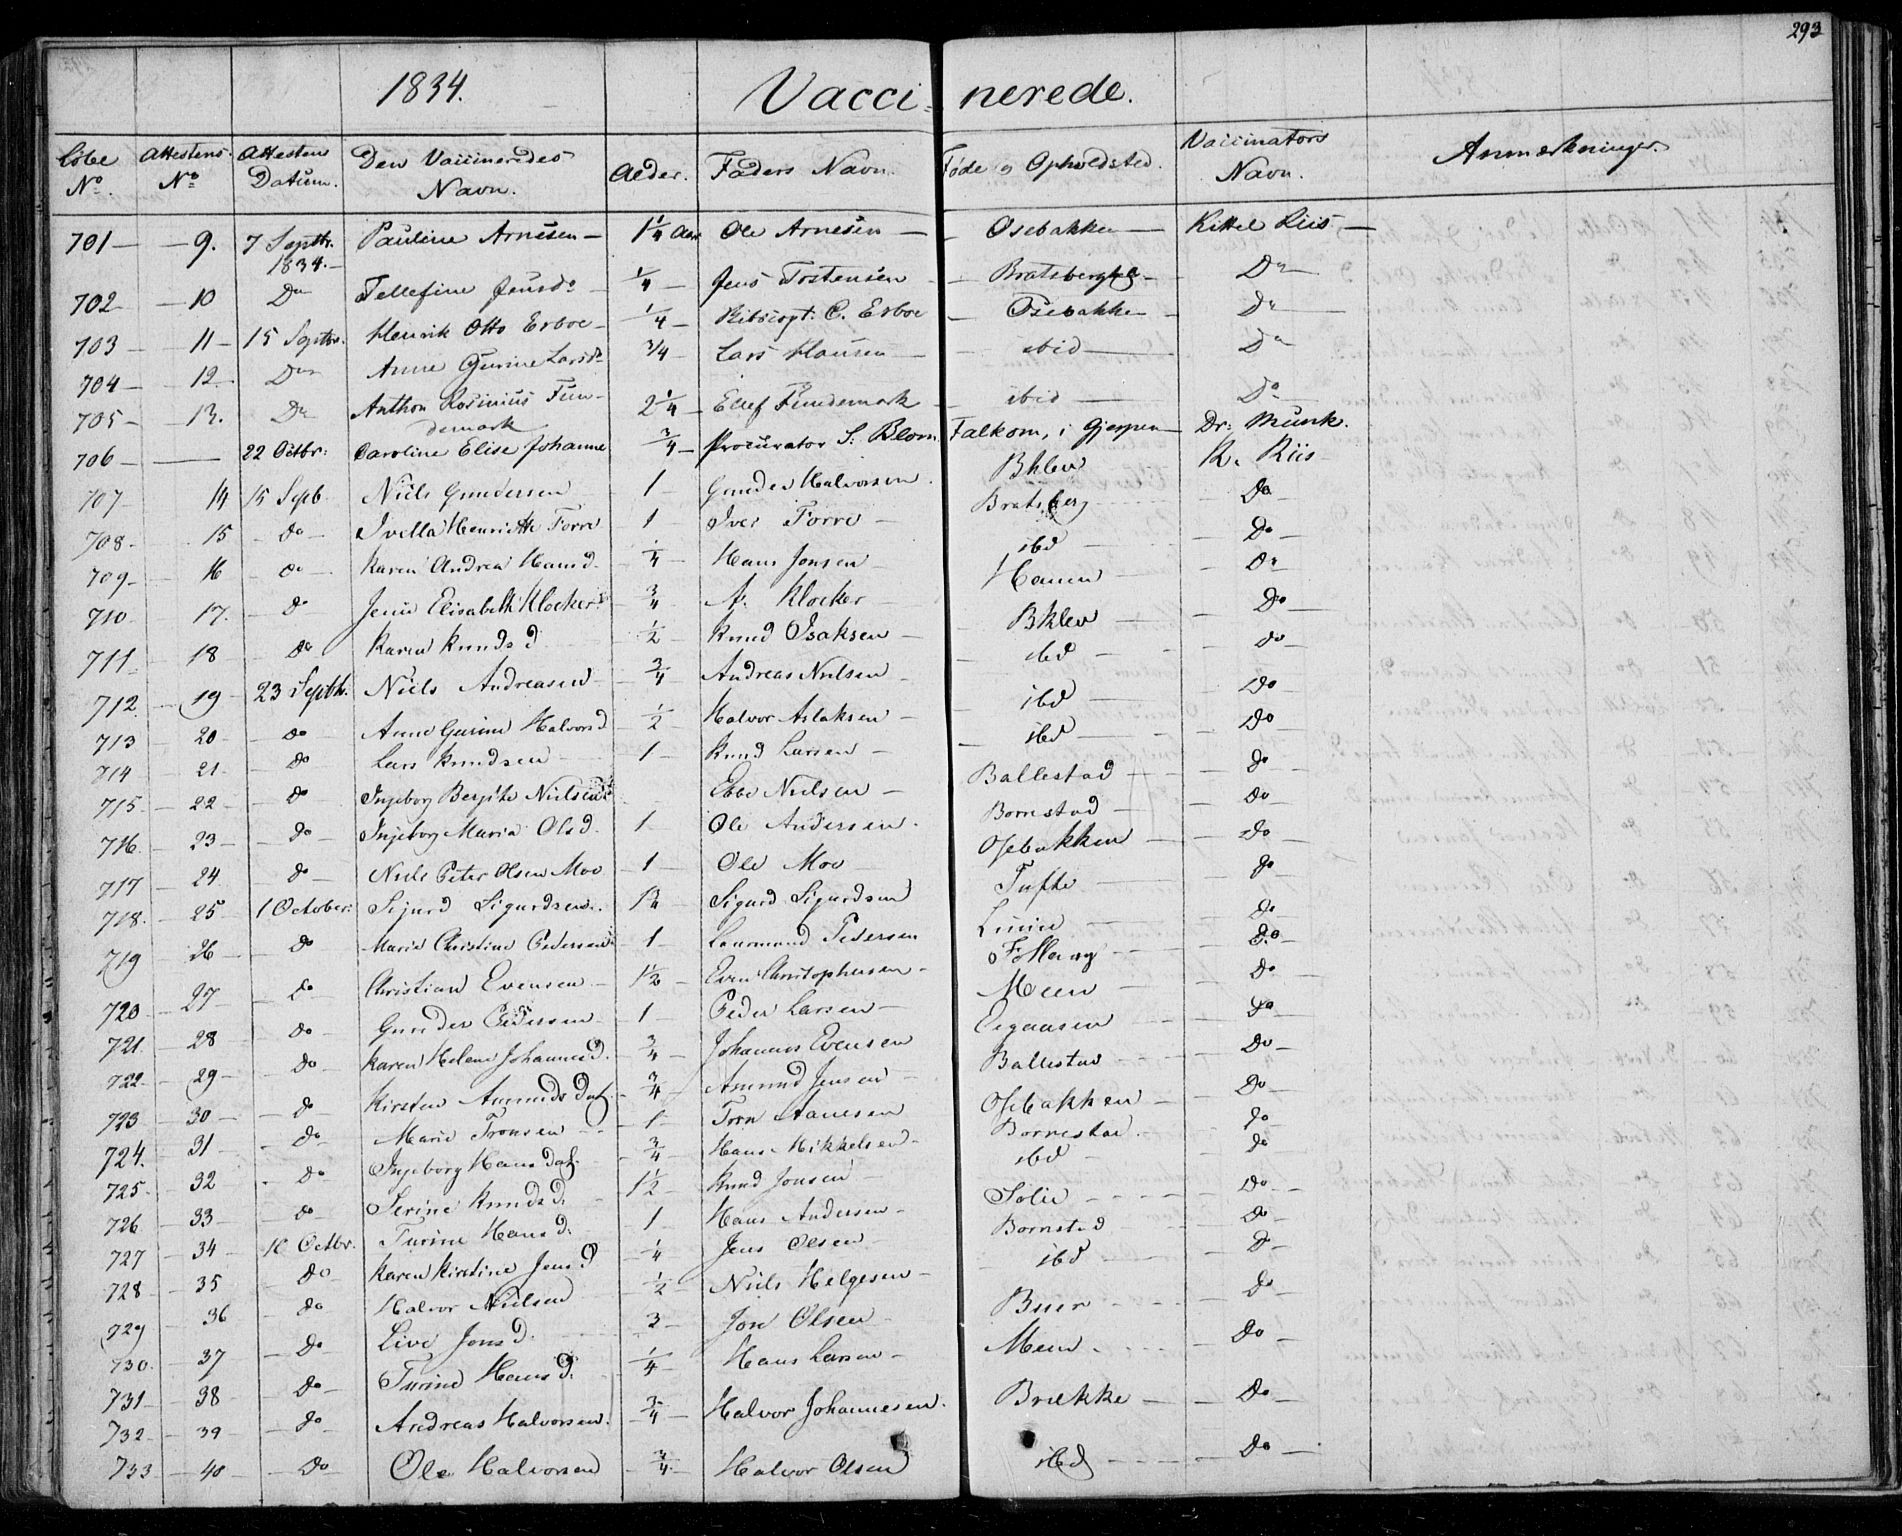 293
1834. Vaccinerede.
Löbe No. Attestens No. Attestens Datum. Den Vaccineredes Navn. Alder. Faders Navn. Føde og Opholdsted. Vaccinators Navn. Anmærkninger.
701 — 9. 7 Septbr. 1834. — Pauline Arnesen — 1 1/4 Aar Ole Arnesen — Osebakken — Kittel Riis —
702 — 10 Do Tellefine Jensdr 1/4 — Jens Tostensen — Bratsberg — Do
703 — 11 — 15 Septbr. Henrik Otto Esboe — 1/4 — C. Esboe — Osebakken — Do
704 — 12 Do Anne Gurine Larsdr 3/4 — Lars Hansen — ibid — Do
705 — 13. Do Anthon Rosinius Fundemark 2 1/4 — Ellef Fundemark — ibid — Do
706 — — 22 Octbr: Caroline Elise Johanne 3/4 — Procurator S. Blom Falkom, i Gjerpen — Dr: Munk.
707 — 14 15 Septb. Niels Gundersen 1 — Gunder Halvorsen Bklev K. Riis
708 — 15 — do — Ivella Henriette Forre 1 — Iver Forre — Bratsberg — Do
709 — 16 — do — Karen Andrea Hansd. 1/4 — Hans Jonsen — ibd — Do
710 — 17. — do Jenie Elisabeth Klocker 3/4 — Klocker — Hauen — Do
711 — 18 — do Karen Knudsd 1/2 — Knud Isaksen — Bklev — Do
712. — 19 — 23 Septbr. Niels Andreasen 3/4 — Andreas Nielsen — ibd — do
713 — 20 — do Anne Gurine Halvorsd 1/2 — Halvor Aslaksen — ibd — Do
714 — 21 — do Lars Knudsen 1 — Knud Larsen — ibd — Do
715 — 22 — do Ingeborg Bergite Nielsend Ebbe Nielsen — Ballestad — do
716 — 23 — do Ingeborg Maria Olsd. 1 Ole Andersen — Bornestad — do
717 — 24 — do Niels Peter Olsen Moe 1 Ole Moe Osebakken — do
718. — 25 1 October: Sigurd Sigurdsen 1 1/4 Sigurd Sigurdsen Tufte — do
719 — 26 — do Marie Christine Pedersen 1 Pedersen do
720 — 27 — do Christian Evensen — 1 1/2 — Even Christophersen — do
721 — 28 — do Gunder Pedersen 1 — Peder Larsen — Meen — do
722 — 29 — do Karen Helene Johannesd. 3/4 — Johannes Evensen Eegaasen — do
723 — 30 — do Kirsten Amundsdat. 3/4 Amund Jensen — Ballestad — do
724. — 31 — do Marie Tronsen — 1 Tron Aanesen Osebakken — do
725 — 32 — do Ingeborg Hansdat. 3/4 Hans Mikkelsen — Bornestad — do
726 — 33 — do Serine Knudsd. 1 1/2 — Knud Jonsen — ibd — do
727 — 34 — 16 Octbr. Turine Hansd. 1 Hans Andersen — Solie — do
728 — 35 — do Karen Kirstine Jensd 1/4 Jens Olsen — Bornestad — do
729 — 36 — do Halvor Nielsen 1/2 — Niels Helgesen — ibd — do
730. — 37 — do Live Jonsd. 3 — Jon Olsen — Buer — do
731 — 38 — do Turine Hansd. 1/4 — Hans Larsen — Meen — do
732 — 39 — do Andreas Halvorsen. 3/4 — Halvor Johannesen. Brække — do
733 — 40 — do Ole Halvorsen 3/4 — Halvor Olsen ibd — do